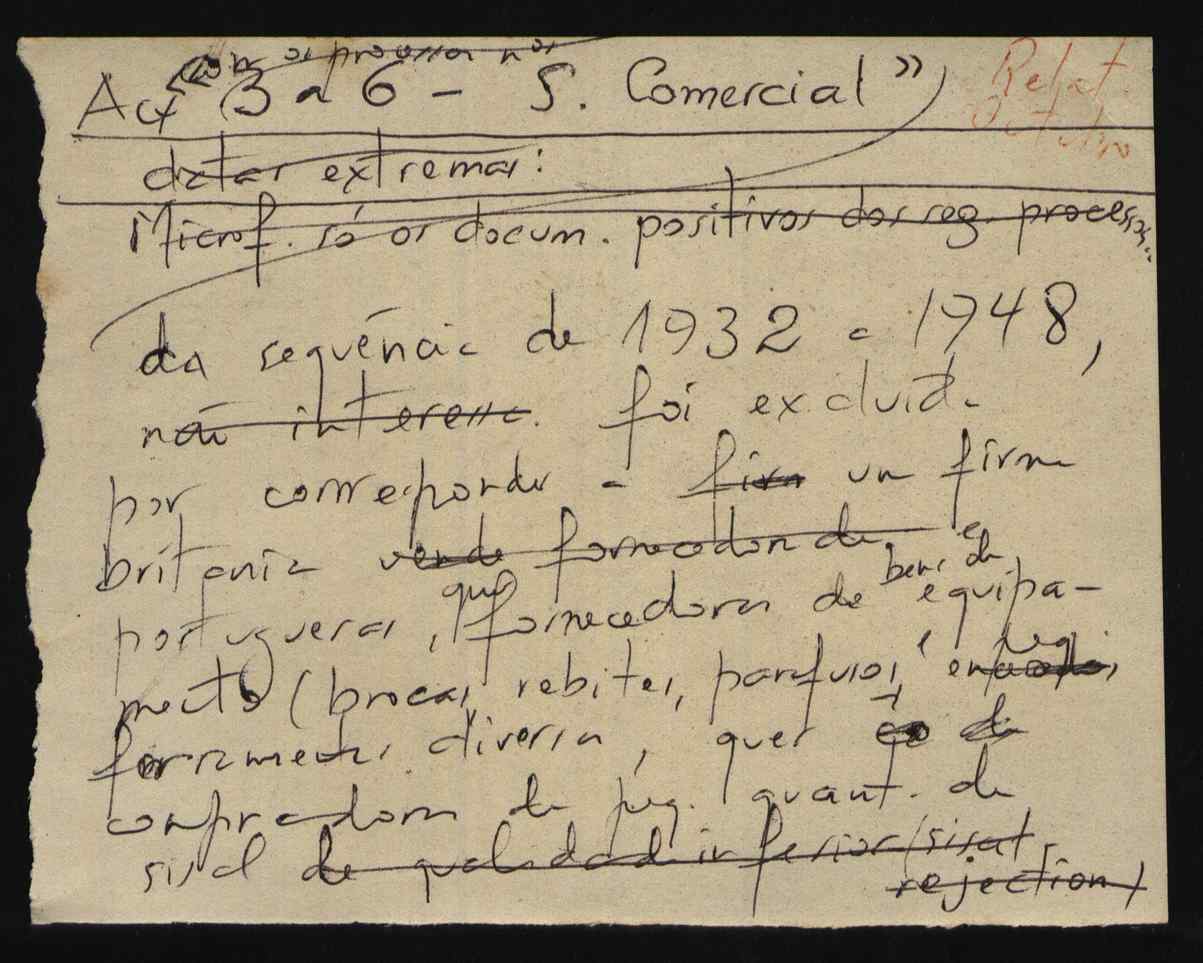 com os processos nos
Act 3 a 6 - S. Comercial"
Relat. Outubro
datas extremas:
Microf. só os docum. positivos dos seg. processos
da sequência de 1932 a 1948,
não interessa. foi excluída
por corresponder a firm um firma
britânia vende fornecedora de e
portuguesas, que fornecedoras de bens de equipa-
mento (brocas, rebites, parafusos,
ferramentas diversas, quer de
compradora de peq. quant. de
sisal de qualidade inferior (sisal
rejection)